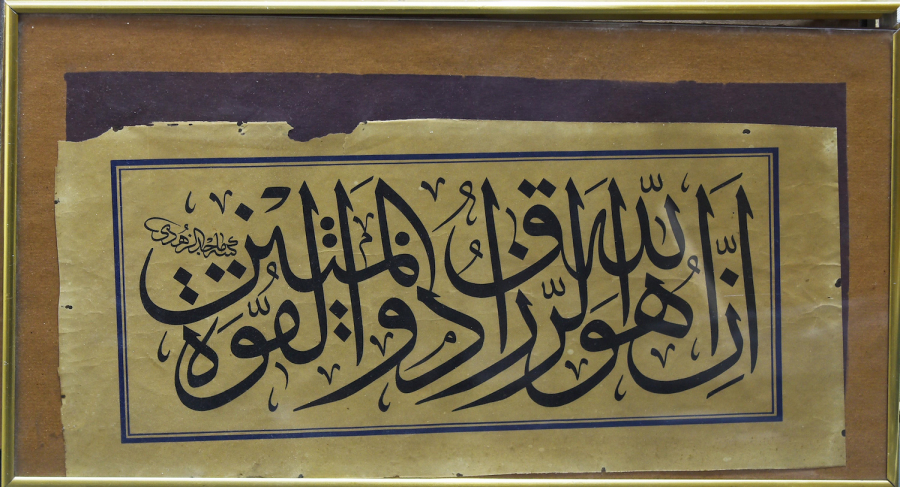 إِنَّ اللَّهَ هُوَ الرَّزَّاقُ ذُو الْقُوَّةِ الْمَتِينُ
كتبه ماجد الزهدي